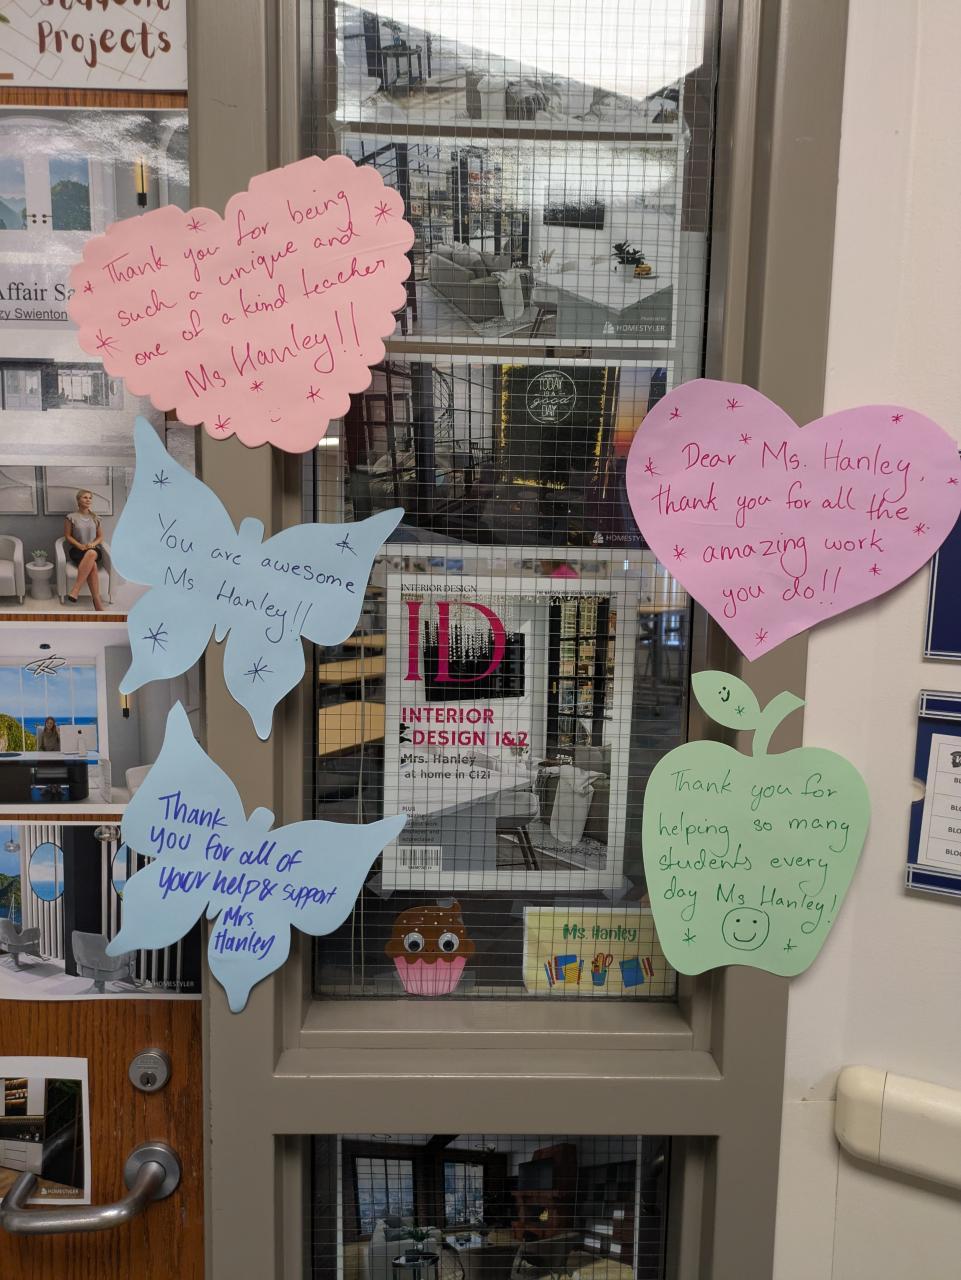 Student
Projects
Affair Sa
zy Swienton
Thank you for being
such a unique and
one of a kind teacher
Ms Hanley!!
HOMESTYLER
TODAY
IS A
good
DAY
HOMESTYLER
You are awesome
Ms Hanley!!
Dear Ms. Hanley,
thank you for all the
amazing work
you do!!
INTERIOR DESIGN
ID
INTERIOR
DESIGN 1&2
Mrs. Hanley
at home in C121
PLUS
Thank
you for all of
your help & support
Mrs.
Hanley
Thank you for
helping so many
students every
day Ms Hanley!
Ms. Hanley
HOMESTYLER
BL
BLO
BLO
BLO
HOMESTYLER